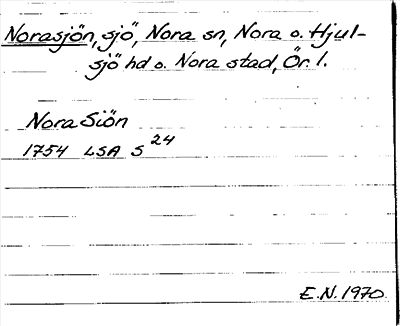 Norasjön, sjö, Nora sn, Nora o. Hjul-
sjö hd o. Nora stad, Ör l.
Nora Siön
1754 LSA S 24
E.N. 1970